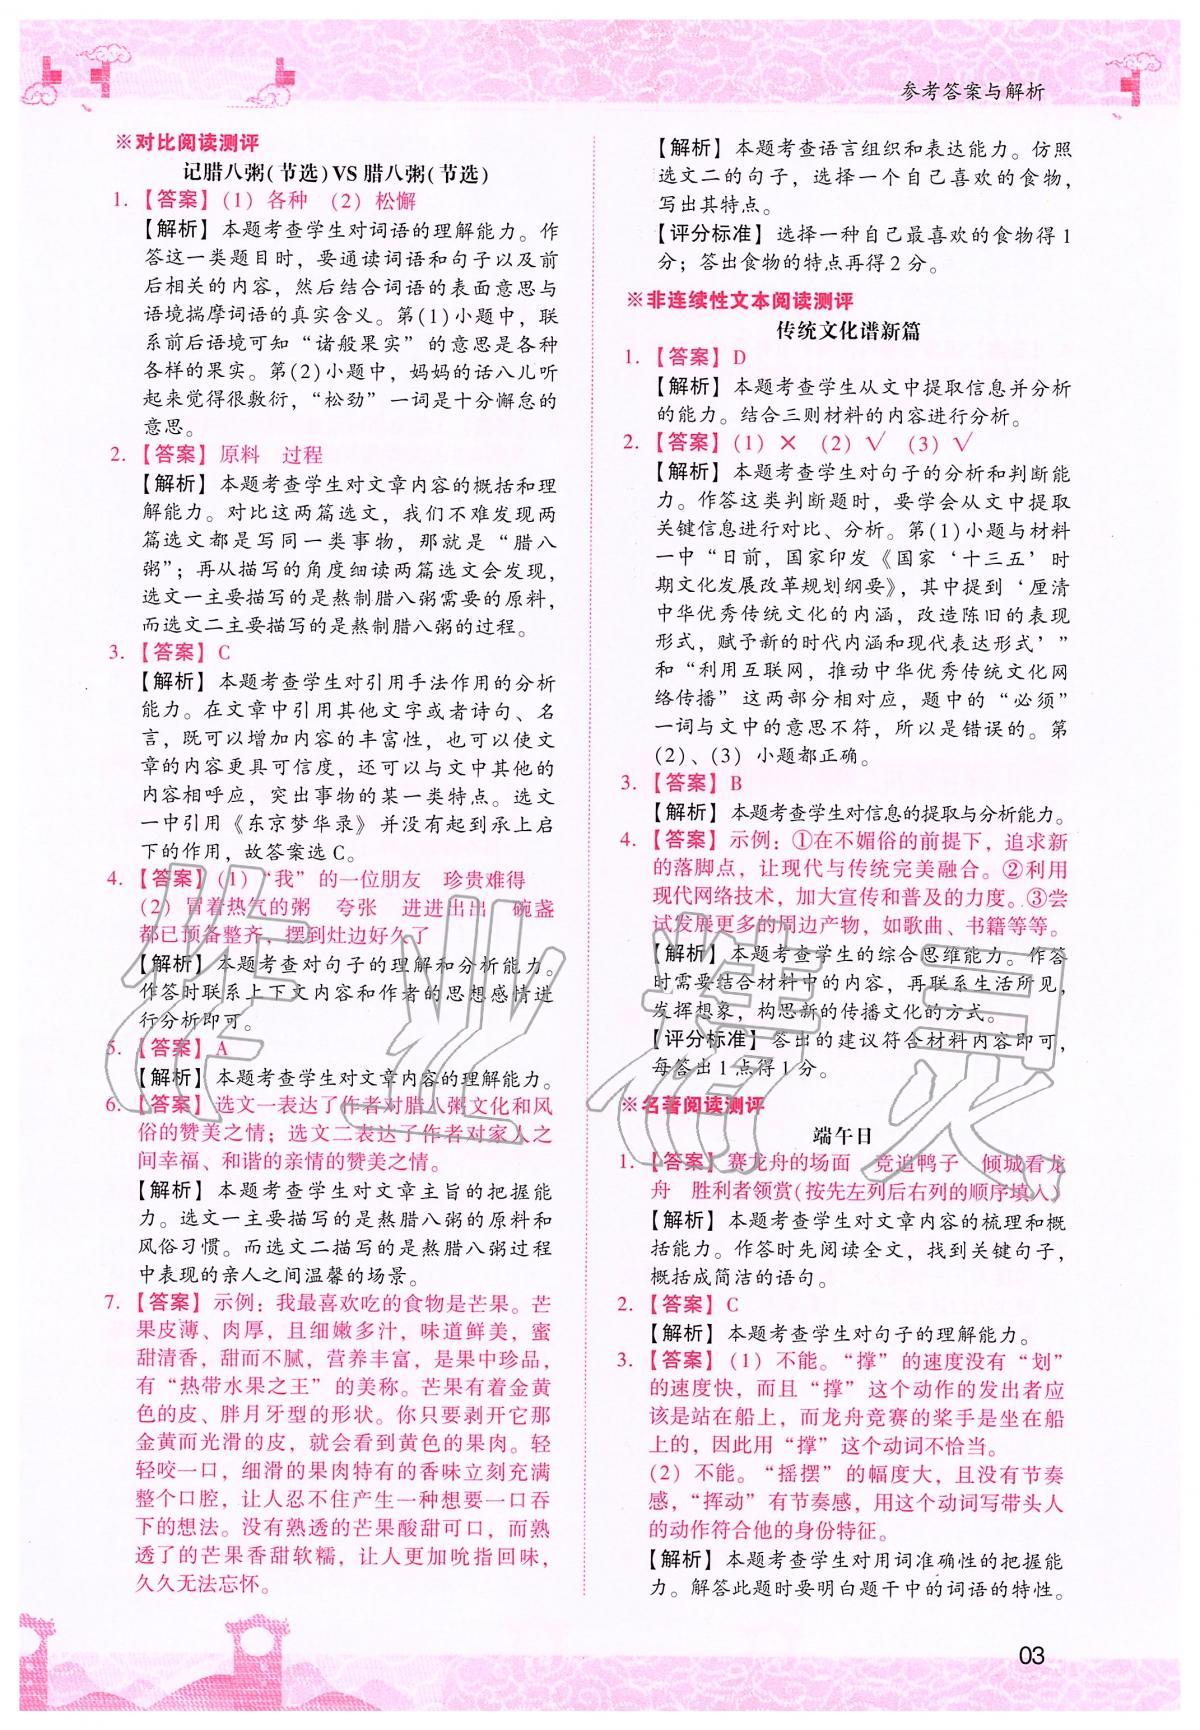 参考答案与解析
※对比阅读测评
记腊八粥(节选)VS腊八粥(节选)
1.【答案】(1)各种 (2)松懈
【解析】本题考查学生对词语的理解能力。作
答这一类题目时，要通读词语和句子以及前
后相关的内容，然后结合词语的表面意思与
语境揣摩词语的真实含义。第(1)小题中，联
系前后语境可知“诸般果实”的意思是各种
各样的果实。第(2)小题中，妈妈的话八儿听
起来觉得很敷衍，“松劲”一词是十分懈怠的
意思。
2.【答案】原料 过程
【解析】本题考查学生对文章内容的概括和理
解能力。对比这两篇选文，我们不难发现两
篇选文都是写同一类事物，那就是“腊八
粥”；再从描写的角度细读两篇选文会发现，
选文一主要描写的是熬制腊八粥需要的原料，
而选文二主要描写的是熬制腊八粥的过程。
3.【答案】C
【解析】本题考查学生对引用手法作用的分析
能力。在文章中引用其他文字或者诗句、名
言，既可以增加内容的丰富性，也可以使文
章的内容更具可信度，还可以与文中其他的
内容相呼应，突出事物的某一类特点。选文
一中引用《东京梦华录》并没有起到承上启
下的作用，故答案选C。
4.【答案】(1)“我”的一位朋友 珍贵难得
(2)冒着热气的粥 夸张 进进出出 碗盏
都已预备整齐，摆到灶边好久了
【解析】本题考查对句子的理解和分析能力。
作答时联系上下文内容和作者的思想感情进
行分析即可。
5.【答案】A
【解析】本题考查学生对文章内容的理解能力。
6.【答案】选文一表达了作者对腊八粥文化和风
俗的赞美之情；选文二表达了作者对家人之
间幸福、和谐的亲情的赞美之情。
【解析】本题考查学生对文章主旨的把握能
力。选文一主要描写的是熬腊八粥的原料和
风俗习惯。而选文二描写的是熬腊八粥过程
中表现的亲人之间温馨的场景。
7.【答案】示例：我最喜欢吃的食物是芒果。芒
果皮薄、肉厚，且细嫩多汁，味道鲜美，蜜
甜清香，甜而不腻，营养丰富，是果中珍品，
有“热带水果之王”的美称。芒果有着金黄
色的皮、胖月牙型的形状。你只要剥开它那
金黄而光滑的皮，就会看到黄色的果肉。轻
轻咬一口，细滑的果肉特有的香味立刻充满
整个口腔，让人忍不住产生一种想要一口吞
下的想法。没有熟透的芒果酸甜可口，而熟
透了的芒果香甜软糯，让人更加吮指回味，
久久无法忘怀。
【解析】本题考查语言组织和表达能力。仿照
选文二的句子，选择一个自己喜欢的食物，
写出其特点。
【评分标准】选择一种自己最喜欢的食物得1
分；答出食物的特点再得2分。
※非连续性文本阅读测评
传统文化谱新篇
1.【答案】D
【解析】本题考查学生从文中提取信息并分析
的能力。结合三则材料的内容进行分析。
2.【答案】(1)× (2)√ (3)√
【解析】本题考查学生对句子的分析和判断能
力。作答这类判断题时，要学会从文中提取
关键信息进行对比、分析。第(1)小题与材料
一中“日前，国家印发《国家‘十三五’时
期文化发展改革规划纲要》，其中提到‘厘清
中华优秀传统文化的内涵，改造陈旧的表现
形式，赋予新的时代内涵和现代表达形式’”
和“利用互联网，推动中华优秀传统文化网
络传播”这两部分相对应，题中的“必须”
一词与文中的意思不符，所以是错误的。第
(2)、(3)小题都正确。
3.【答案】B
【解析】本题考查学生对信息的提取与分析能力。
4.【答案】示例：①在不媚俗的前提下，追求新
的落脚点，让现代与传统完美融合。②利用
现代网络技术，加大宣传和普及的力度。③尝
试发展更多的周边产物，如歌曲、书籍等等。
【解析】本题考查学生的综合思维能力。作答
时需要结合材料中的内容，再联系生活所见，
发挥想象，构思新的传播文化的方式。
【评分标准】答出的建议符合材料内容即可，
每答出1点得1分。
※名著阅读测评
端午日
1.【答案】赛龙舟的场面 竞追鸭子 倾城看龙
舟 胜利者领赏(按先左列后右列的顺序填入)
【解析】本题考查学生对文章内容的梳理和概
括能力。作答时先阅读全文，找到关键句子，
概括成简洁的语句。
2.【答案】C
【解析】本题考查学生对句子的理解能力。
3.【答案】(1)不能。“撑”的速度没有“划”
的速度快，而且“撑”这个动作的发出者应
该是站在船上，而龙舟竞赛的桨手是坐在船
上的，因此用“撑”这个动词不恰当。
(2)不能。“摇摆”的幅度大，且没有节奏
感，“挥动”有节奏感，用这个动词写带头人
的动作符合他的身份特征。
【解析】本题考查学生对用词准确性的把握能
力。解答此题时要明白题干中的词语的特性。
03
作业精灵